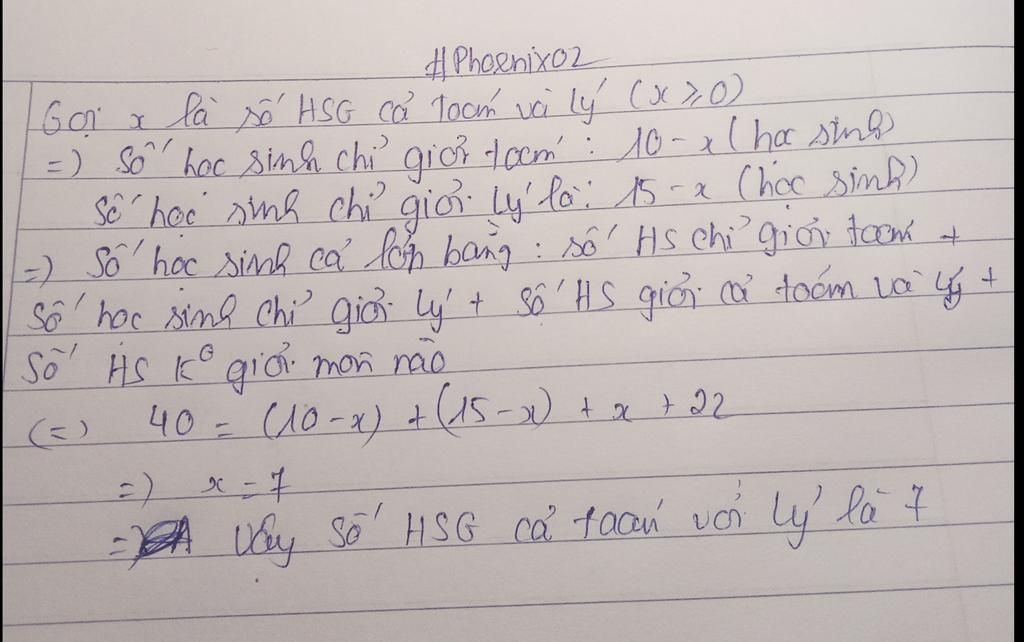 #Phoenix02
Gọi x là số HSG cả toán và lý (x ≥ 0)
=) Số học sinh chỉ giỏi toán : 10 - x (học sinh)
Số học sinh chỉ giỏi lý là : 15 - x (học sinh)
=) Số học sinh cả lớp bằng : số HS chỉ giỏi toán +
Số học sinh chỉ giỏi lý + Số HS giỏi cả toán và lý +
Số HS k⁰ giỏi môn nào
(=) 40 = (10 - x) + (15 - x) + x + 22
=) x = 7
=) Vậy Số HSG cả toán với lý là 7